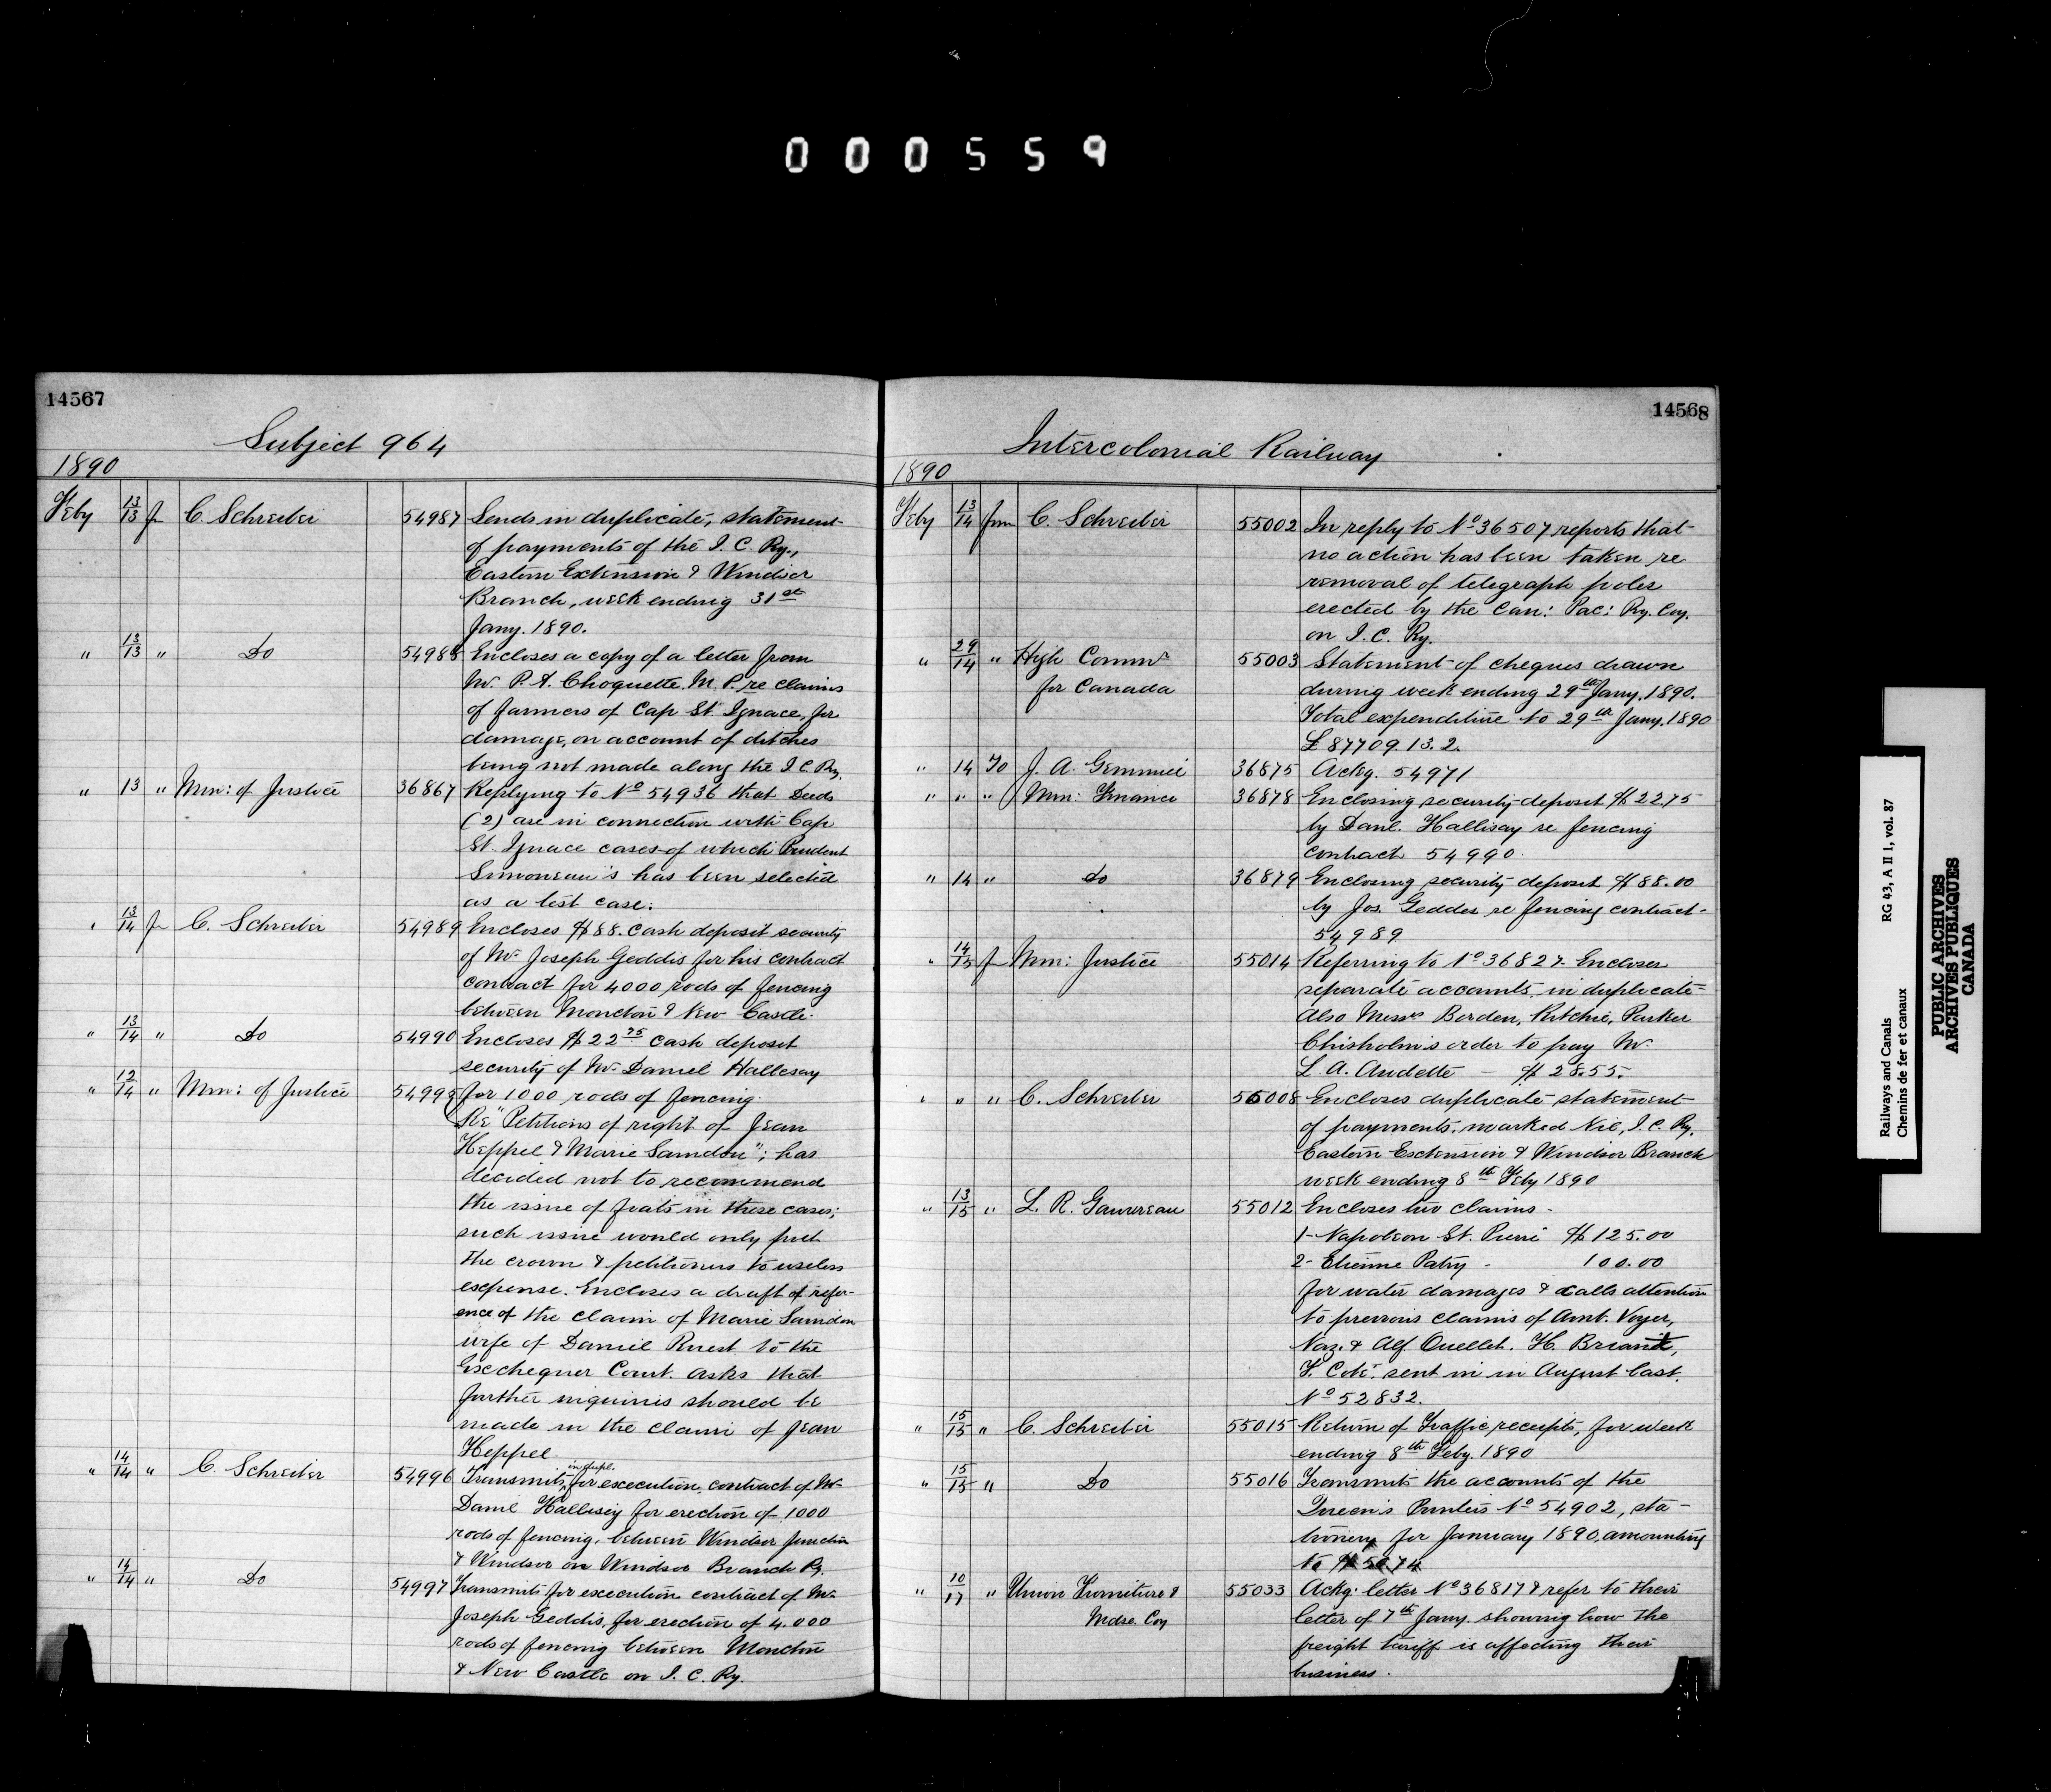 000559
14567
Subject 964
1890
Feby 13/13 fr C. Schreiber 54987 Sends in duplicate, statement
of payments of the I. C. Ry.,
Eastern Extension & Windsor
Branch, week ending 31st
Jany. 1890.
" 13/13 " Do 54988 Encloses a copy of a letter from
Mr. P. A. Choquette. M. P. re claims
of farmers of Cap St. Ignace, for
damage, on account of ditches
being not made along the I. C. Ry.
" 13 " Min: of Justice 36867 Replying to No 54936 that Deeds
(2) are in connection with Cap
St. Ignace cases of which Prudent
Simoneau's has been selected
as a test case.
" 13/14 fr C. Schreiber 54989 Encloses $88. cash deposit security
of Mr. Joseph Geddis for his contract
contract for 4000 rods of fencing
between Moncton & New Castle.
" 13/14 " Do 54990 Encloses $22 75 cash deposit
security of Mr. Daniel Hallesay
for 1000 rods of fencing.
" 12/14 " Min: of Justice 54993 Re "Petitions of right of Jean
Heppel & Marie Samdon"; has
decided not to recommend
the issue of fiats in these cases;
such issue would only put
the crown & petitioners to useless
expense. Encloses a draft of refer-
ence of the claim of Marie Samdon
wife of Daniel Ruest to the
Exchequer Court. Asks that
further inquiries should be
made in the claim of Jean
Heppel
" 14/14 " C. Schreiber 54996 Transmits, in dupl. for execution, contract of Mr.
Danl Hallisey for erection of 1000
rods of fencing, between Windsor Junction
& Windsor on Windsor Branch Ry.
" 14/14 " Do 54997 Transmits for execution contract of Mr.
Joseph Geddis, for erection of 4.000
rods of fencing between Moncton
& New Castle on I. C. Ry.
14568
Intercolonial Railway
1890
Feby 13/14 from C. Schreiber 55002 In reply to No 36507 reports that
no action has been taken re
removal of telegraph poles
erected by the Can: Pac: Ry. Coy.
on I. C. Ry.
" 29/14 " High Commr 55003 Statement of cheques drawn
for Canada during week ending 29th Jany. 1890.
Total expenditure to 29th Jany. 1890
£ 87709. 13. 2.
" 14 To J. A. Gemmil 36875 Ackg. 54971
" " " Min: Finance 36878 Enclosing security deposit $22.75
by Danl. Hallisay re fencing
contract 54990.
" 14 " do 36879 Enclosing security deposit $88.00
by Jos. Geddes re fencing contract
54989
" 14/15 fr Min: Justice 55014 Referring to No 36827. Encloses
separate accounts in duplicate
Also Messrs Borden, Ritchie, Parker
Chisholm's order to pay Mr.
L. A. Audette — $28.55.
" " " C. Schreiber 55008 Encloses duplicate statement
of payments, marked Nil, I. C. Ry.
Eastern Extension & Windsor Branch
week ending 8th Feby 1890
" 13/15 " L. R. 55012 Encloses two claims -
1- Napoleon St. Pierre $125.00
2- Etienne Patry - 100.00
for water damages & calls attention
to previous claims of Amt. Voyer,
Naz. & Alf. Ouellet. H. Briant,
F. Coté. sent in in August last.
No 52832.
" 15/15 " C. Schreiber 55015 Return of Traffic receipts, for week
ending 8th Feby. 1890
" 15/15 " Do 55016 Transmits the accounts of the
Queen's Printers No 54902, sta-
tionery for January 1890, amounting
to $50.74
" 10/17 " Union Furniture & 55033 Ackg: letter No 36817 & refer to their
Mdse. Coy letter of 7th Jany. showing how the
freight tariff is affecting their
business.
Railways and Canals RG 43, A II 1, vol. 87
Chemins de fer et canaux
PUBLIC ARCHIVES
ARCHIVES PUBLIQUES
CANADA